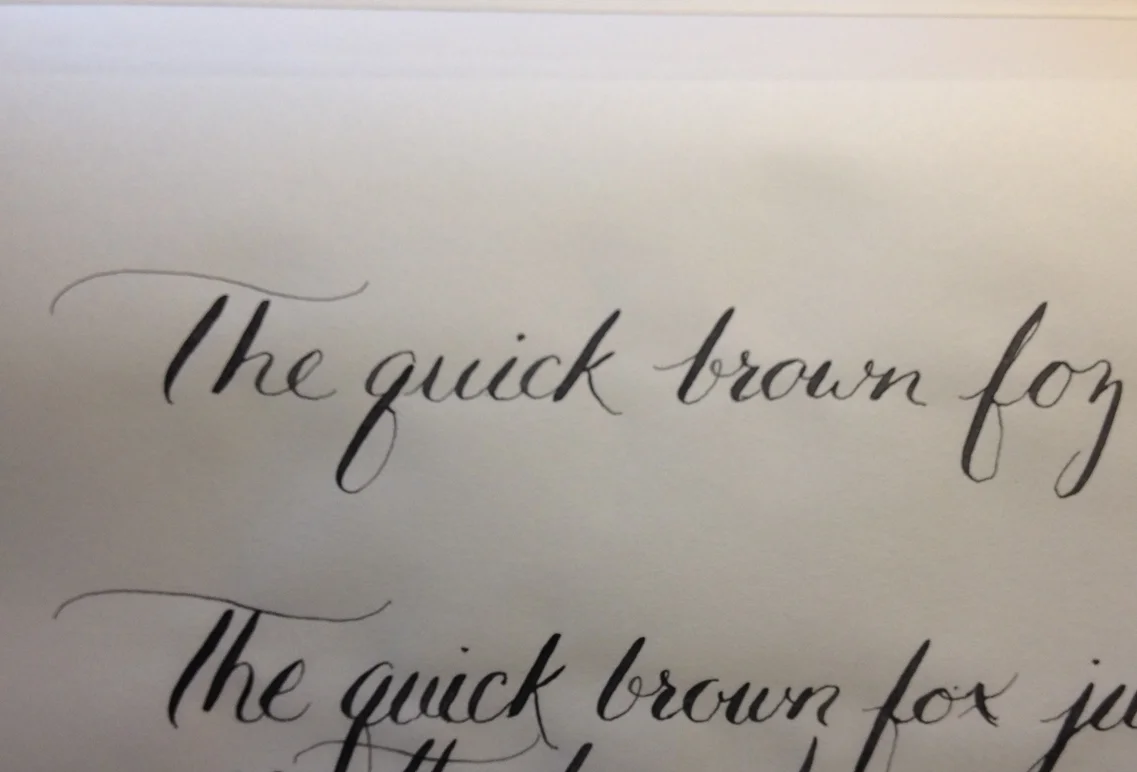 The quick brown foz
The quick brown fox ju